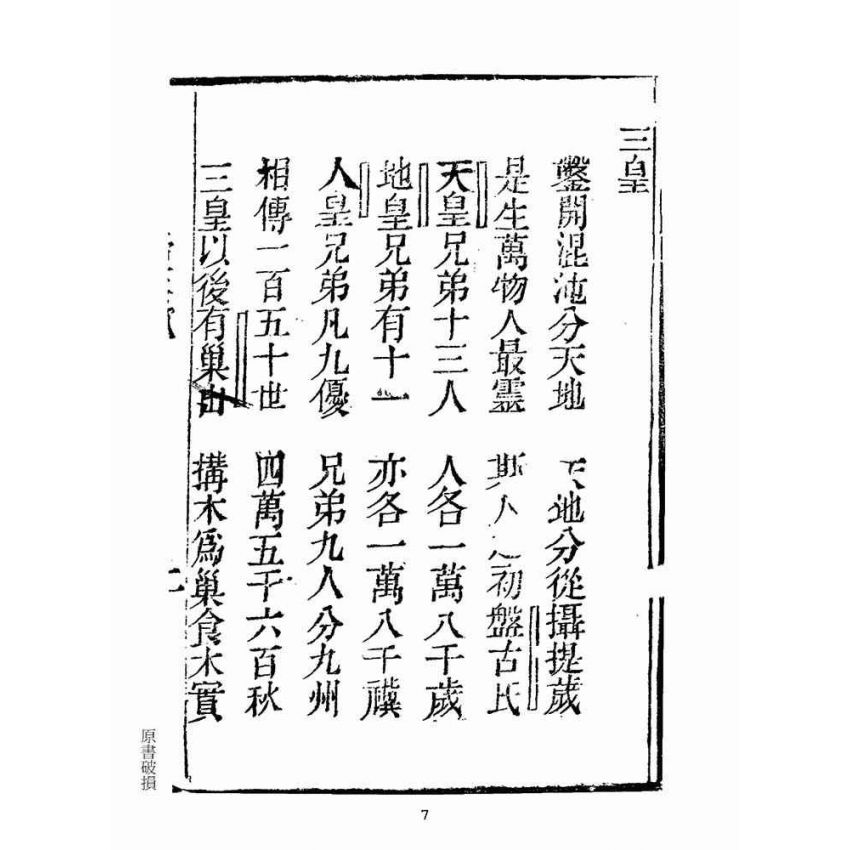 三皇
鑿開混沌分天地 天地分從攝提歲
是生萬物人最靈 斯人之初盤古氏
天皇兄弟十三人 人各一萬八千歲
地皇兄弟有十一 亦各一萬八千禩
人皇兄弟凡九優 兄弟九人分九州
相傳一百五十世 四萬五千六百秋
三皇以後有巢出 搆木爲巢食木實
原書破損
7